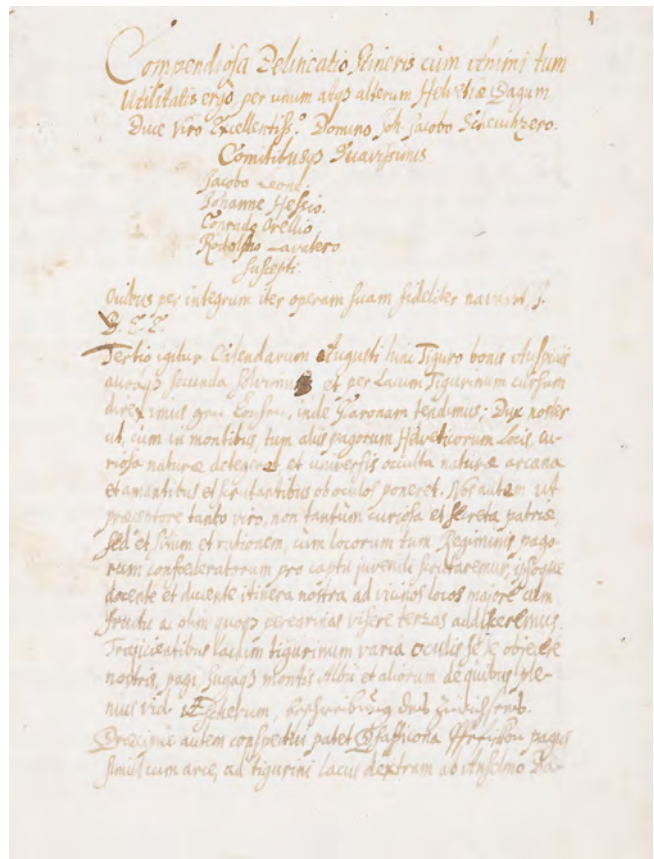 1.
Compendiosa Delineatio Itineris cùm Animi tum
Utilitatis ergò, per unum atqȝ alterum Helvetiæ Pagum
Duce Viro Excellentiss.º Domino Joh. Jacobo Scheuchzero.
Comitibusqȝ Suavissimis
Jacobo Leone.
Johanne Hessio.
Conrado Orellio
Rodolpho Lavatero
suscepti.
Quibus per integrum iter operam suam fideliter
Tertio igitur Calendarum Augusti hinc Tiguro bonis Auspiciis
auraqȝ secunda solvimus et per Lacum Tigurinum cursum
inde Glaronam tendimus; Dux noster
ut, cùm in montibus, tum aliis pagorum Helveticorum Locis, cu-
riosa naturæ detegeret et universis occulta naturæ arcana
et amantibus et scrutantibus ob oculos poneret. Nos autem ut
præceptore tanto viro, non tantùm curiosa et secreta patriæ,
sed et situm et rationem, cùm locorum tum Regiminis pago-
rum confœderatorum pro captu juvenili scrutaremur, ipsoque
docente et ducente itinera nostra ad vicinos locos majore cum
fructu ac olim quoqȝ peregrinas visere terras addisceremus.
Trajicientibus lacum tigurinum varia oculis sese objecere
nostris, pagi, jugaqȝ montis Albii et aliorum de quibus ple-
nius vid. Escherum, Beschreibung des Zürichsees.
Præcipue autem conspectui patet pagus
simul cum arce, ad tigurini lacus dextram ab Anselmo